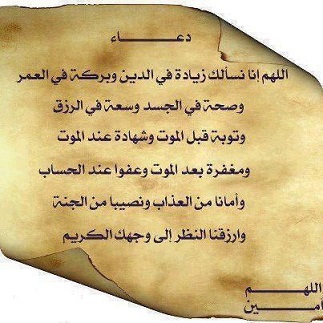 دعــــــاء
اللهم إنا نسألك زيادة في الدين وبركة في العمر
وصحة في الجسد وسعة في الرزق
وتوبة قبل الموت وشهادة عند الموت
ومغفرة بعد الموت وعفوا عند الحساب
وأمانا من العذاب ونصيبا من الجنة
وارزقنا النظر إلى وجهك الكريم
اللهــــم
آمــين